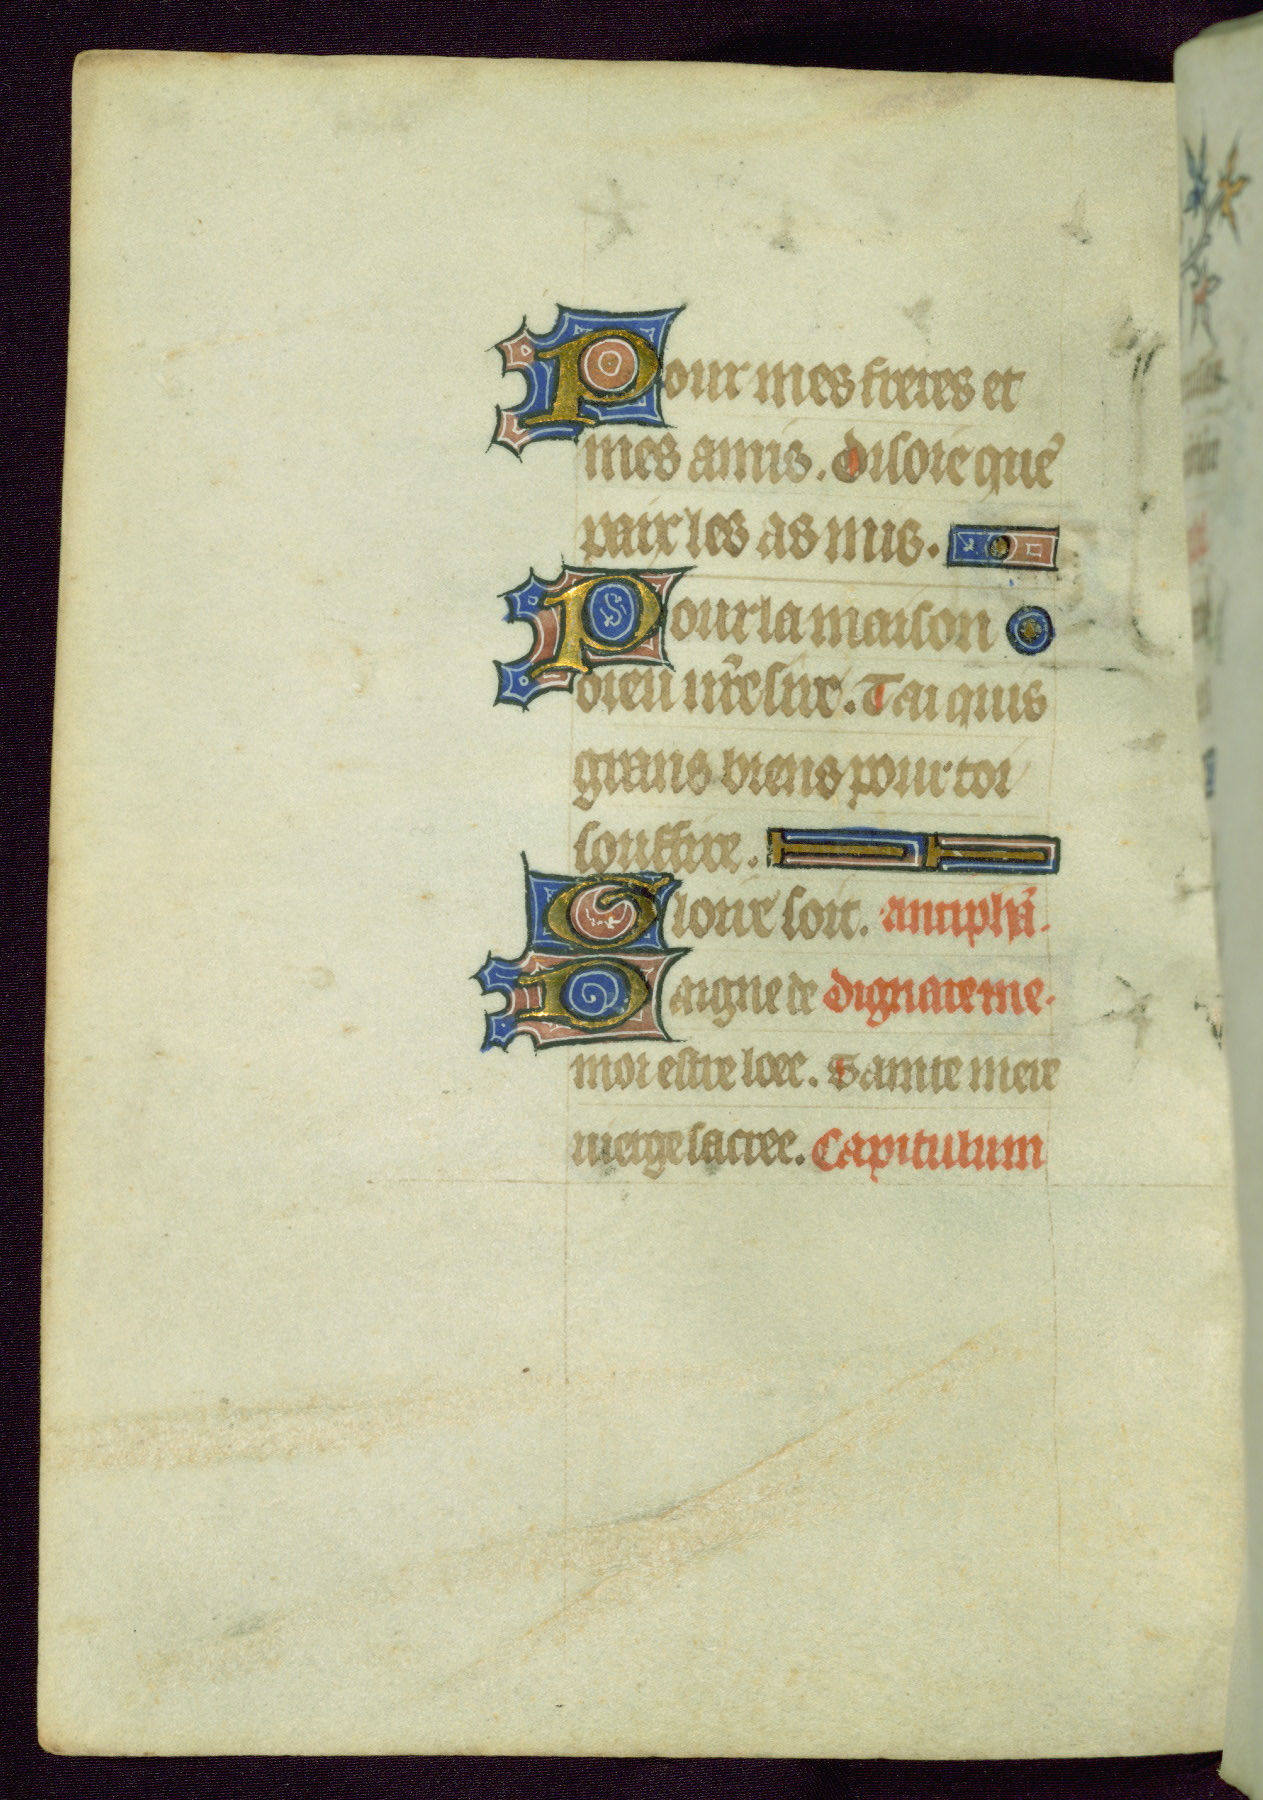 Pour mes freres et
mes amis. Disoie que
paix les as mis.
Pour la maison
dieu nr̃e sire. Tai quis
grans biens pour toi
souffire.
Gloire soit. antiphā.
Daigne de dignare me.
moi estre loee. Sainte mere
uierge sacree. Capitulum